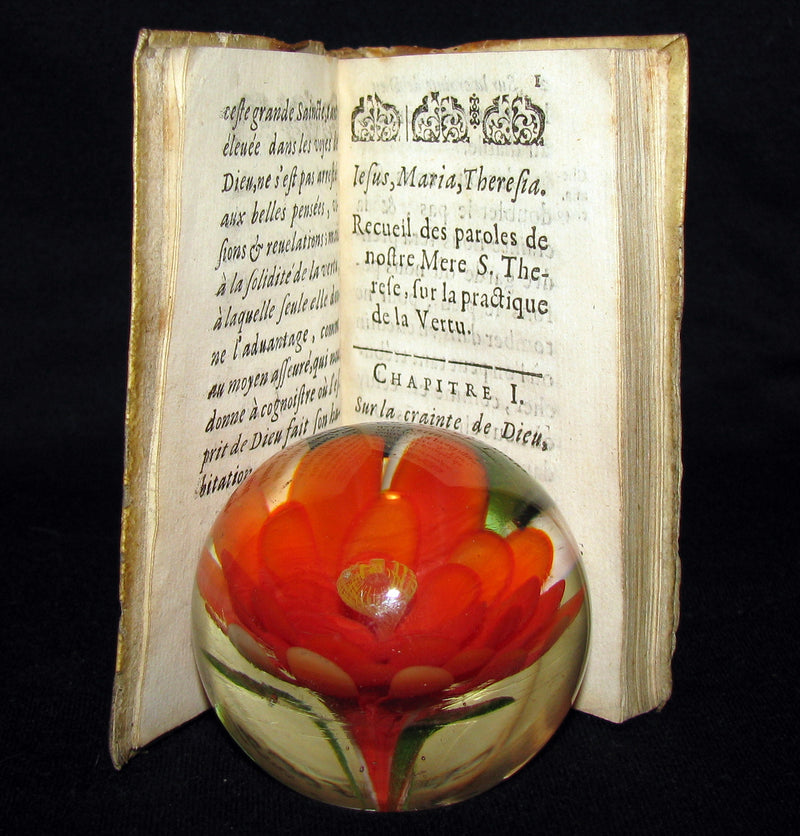 ceſte grande Saincte,
éleuée dans les voyes
Dieu,ne s'eſt pas
aux belles pensées,
ſions & reuelations:
à la ſolidité de la vertu,
à laquelle ſeule elle
ne l'aduantage,
au moyen aſſeuré,qui
donne à cognoiſtre où
prit de Dieu fait ſon
bitation
1
Ieſus,Maria,Thereſia.
Recueil des paroles de
noſtre Mere S. The-
reſe, ſur la practique
de la Vertu.
CHAPITRE I.
Sur la crainte de Dieu,